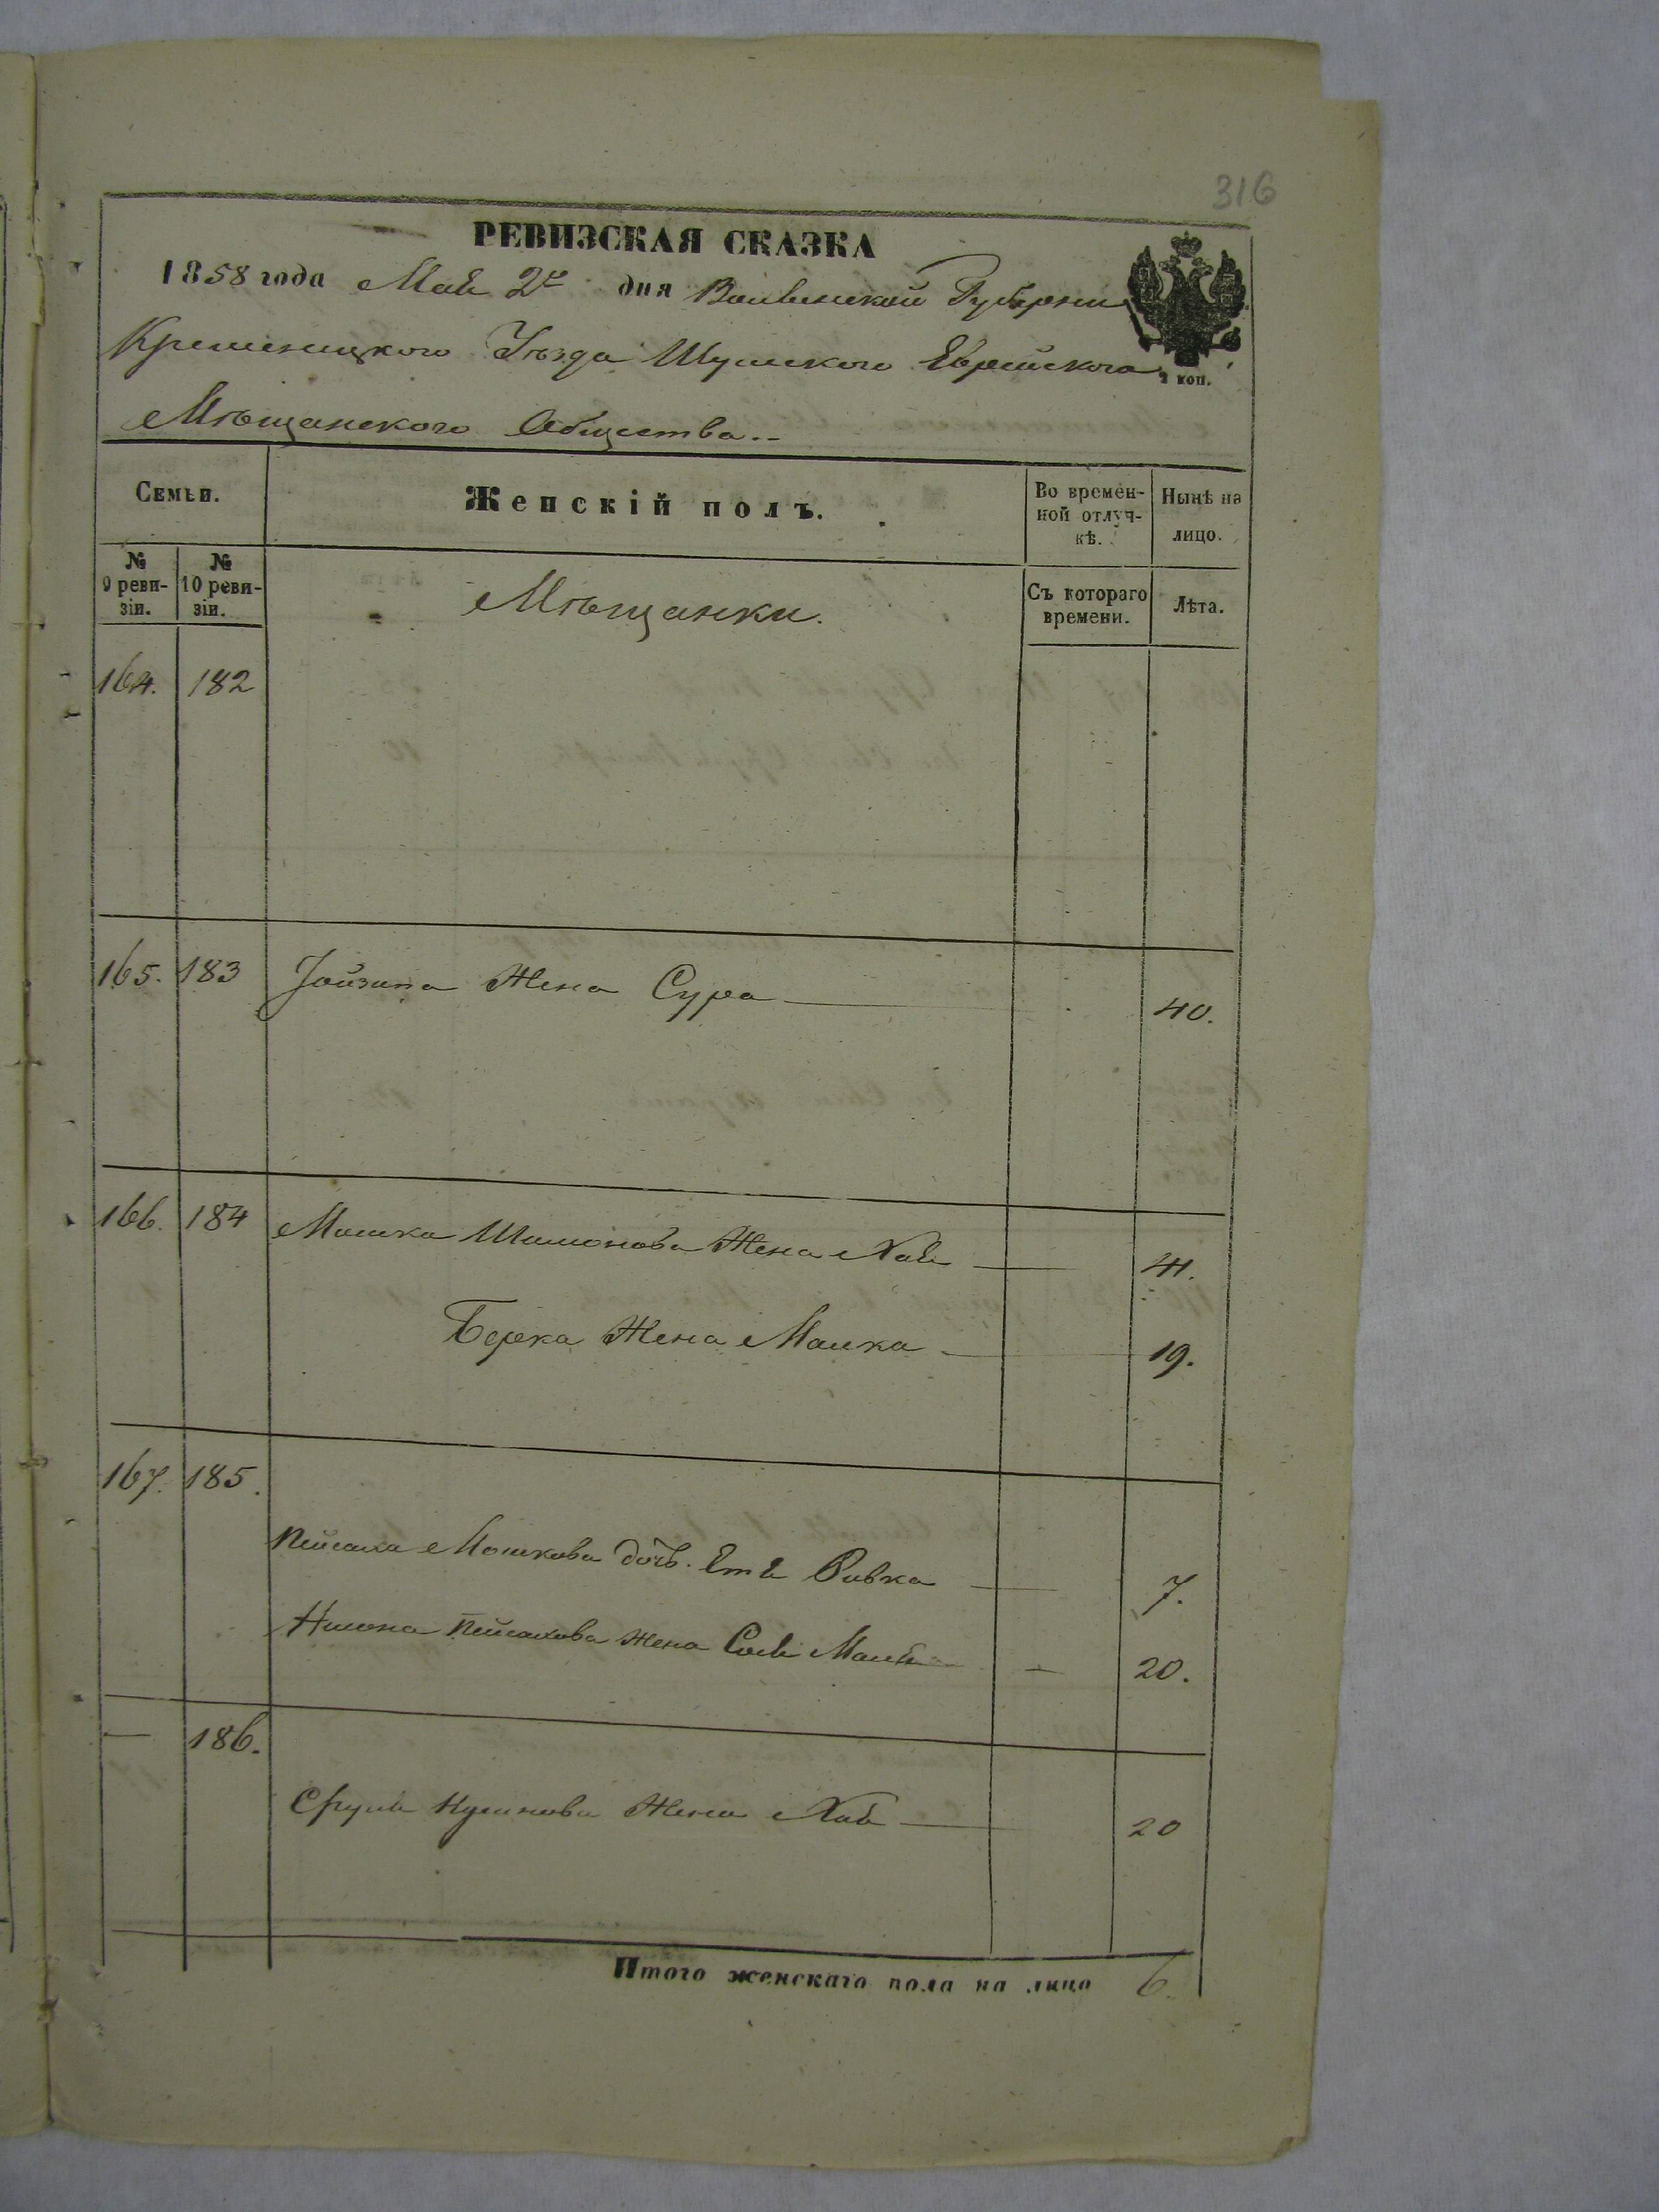 316
РЕВИЗСКАЯ СКАЗКА
1858 года Мая 2го дня Волынской Губернии
Кременецкого Уѣзда Шумского Еврейского
2 коп.
Мѣщанского Общества..
Семьи.
Женскій полъ.
Во времен-
ной отлуч-
кѣ.
Нынѣ на
лицо.
№
9 реви-
зіи.
№
10 реви-
зіи.
Мѣщанки.
Съ котораго
времени.
Лѣта.
164. 182
165. 183 Жена Сура 40.
166. 184 Мошка Жена Хая 41.
Берка Жена Малка 19.
167. 185.
Пейсаха Мошкова дочь Ривка 7.
Пейсахова Жена 20.
— 186.
Сруля Жена 20
Итого женскаго пола на лицо 6.